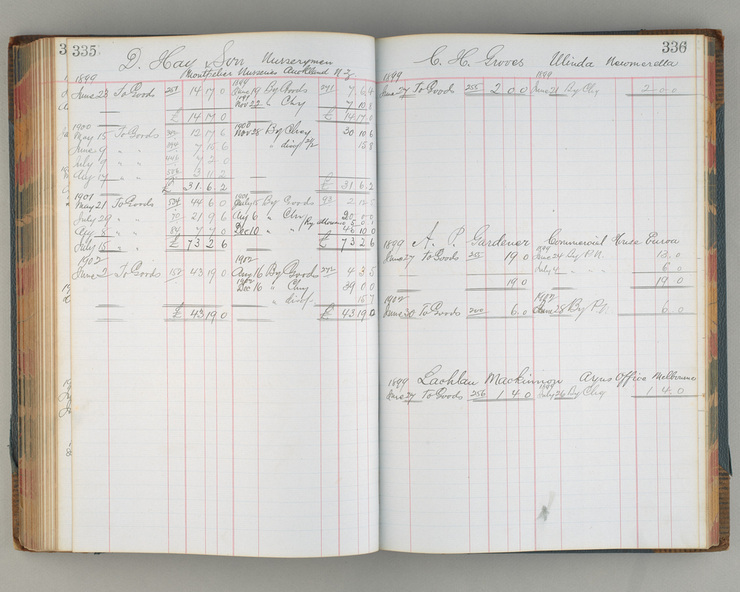 335
D. Hay & Son Nurserymen
Montpelier Nurseries Auckland N.Z.
1899 1899
June 28 To Goods 257 14 17 0 June 19 By Goods 7 6 4
Nov 22 " Chq 7 10 8
£ 14 17 0 £ 14 17 0
1900 1900
May 15 To Goods 12 17 6 Nov 28 By Chq 30 10 6
June 9 " " 7 15 6 " disct 15 8
July 9 " " 7 2 0
Aug 17 " " 3 11 2
£ 31 6 2 £ 31 6 2
1901 1901
May 21 To Goods 44 6 0 July 15 By Goods
July 29 " " 21 9 6 Aug 6 " Chq 20 0 0
Aug 8 " " 7 7 0 Dec 10 " " 46 10 0
July 15 " £ 73 2 6 £ 73 2 6
1902 1902
June 2 To Goods 157 43 19 0 Aug 16 By Goods 4 3 5
Dec 16 " Chq 39 0 0
" disct 15 7
£ 43 19 0 £ 43 19 0
336
C. H. Groves Ulinda Newmerella
1899 1899
June 27 To Goods 255 2 0 0 June 21 By Chq 2 0 0
1899 A. P. Gardener Commercial House Euroa
June 27 To Goods 19 0 June 24 By P.N. 13 0
July 4 " 6 0
19 0 19 0
1902 1902
June 30 To Goods 6 0 June 28 By P.N. 6 0
1899 Lachlan Mackinnon Argus Office Melbourne
June 27 To Goods 256 1 4 0 July 26 By Chq 1 4 0